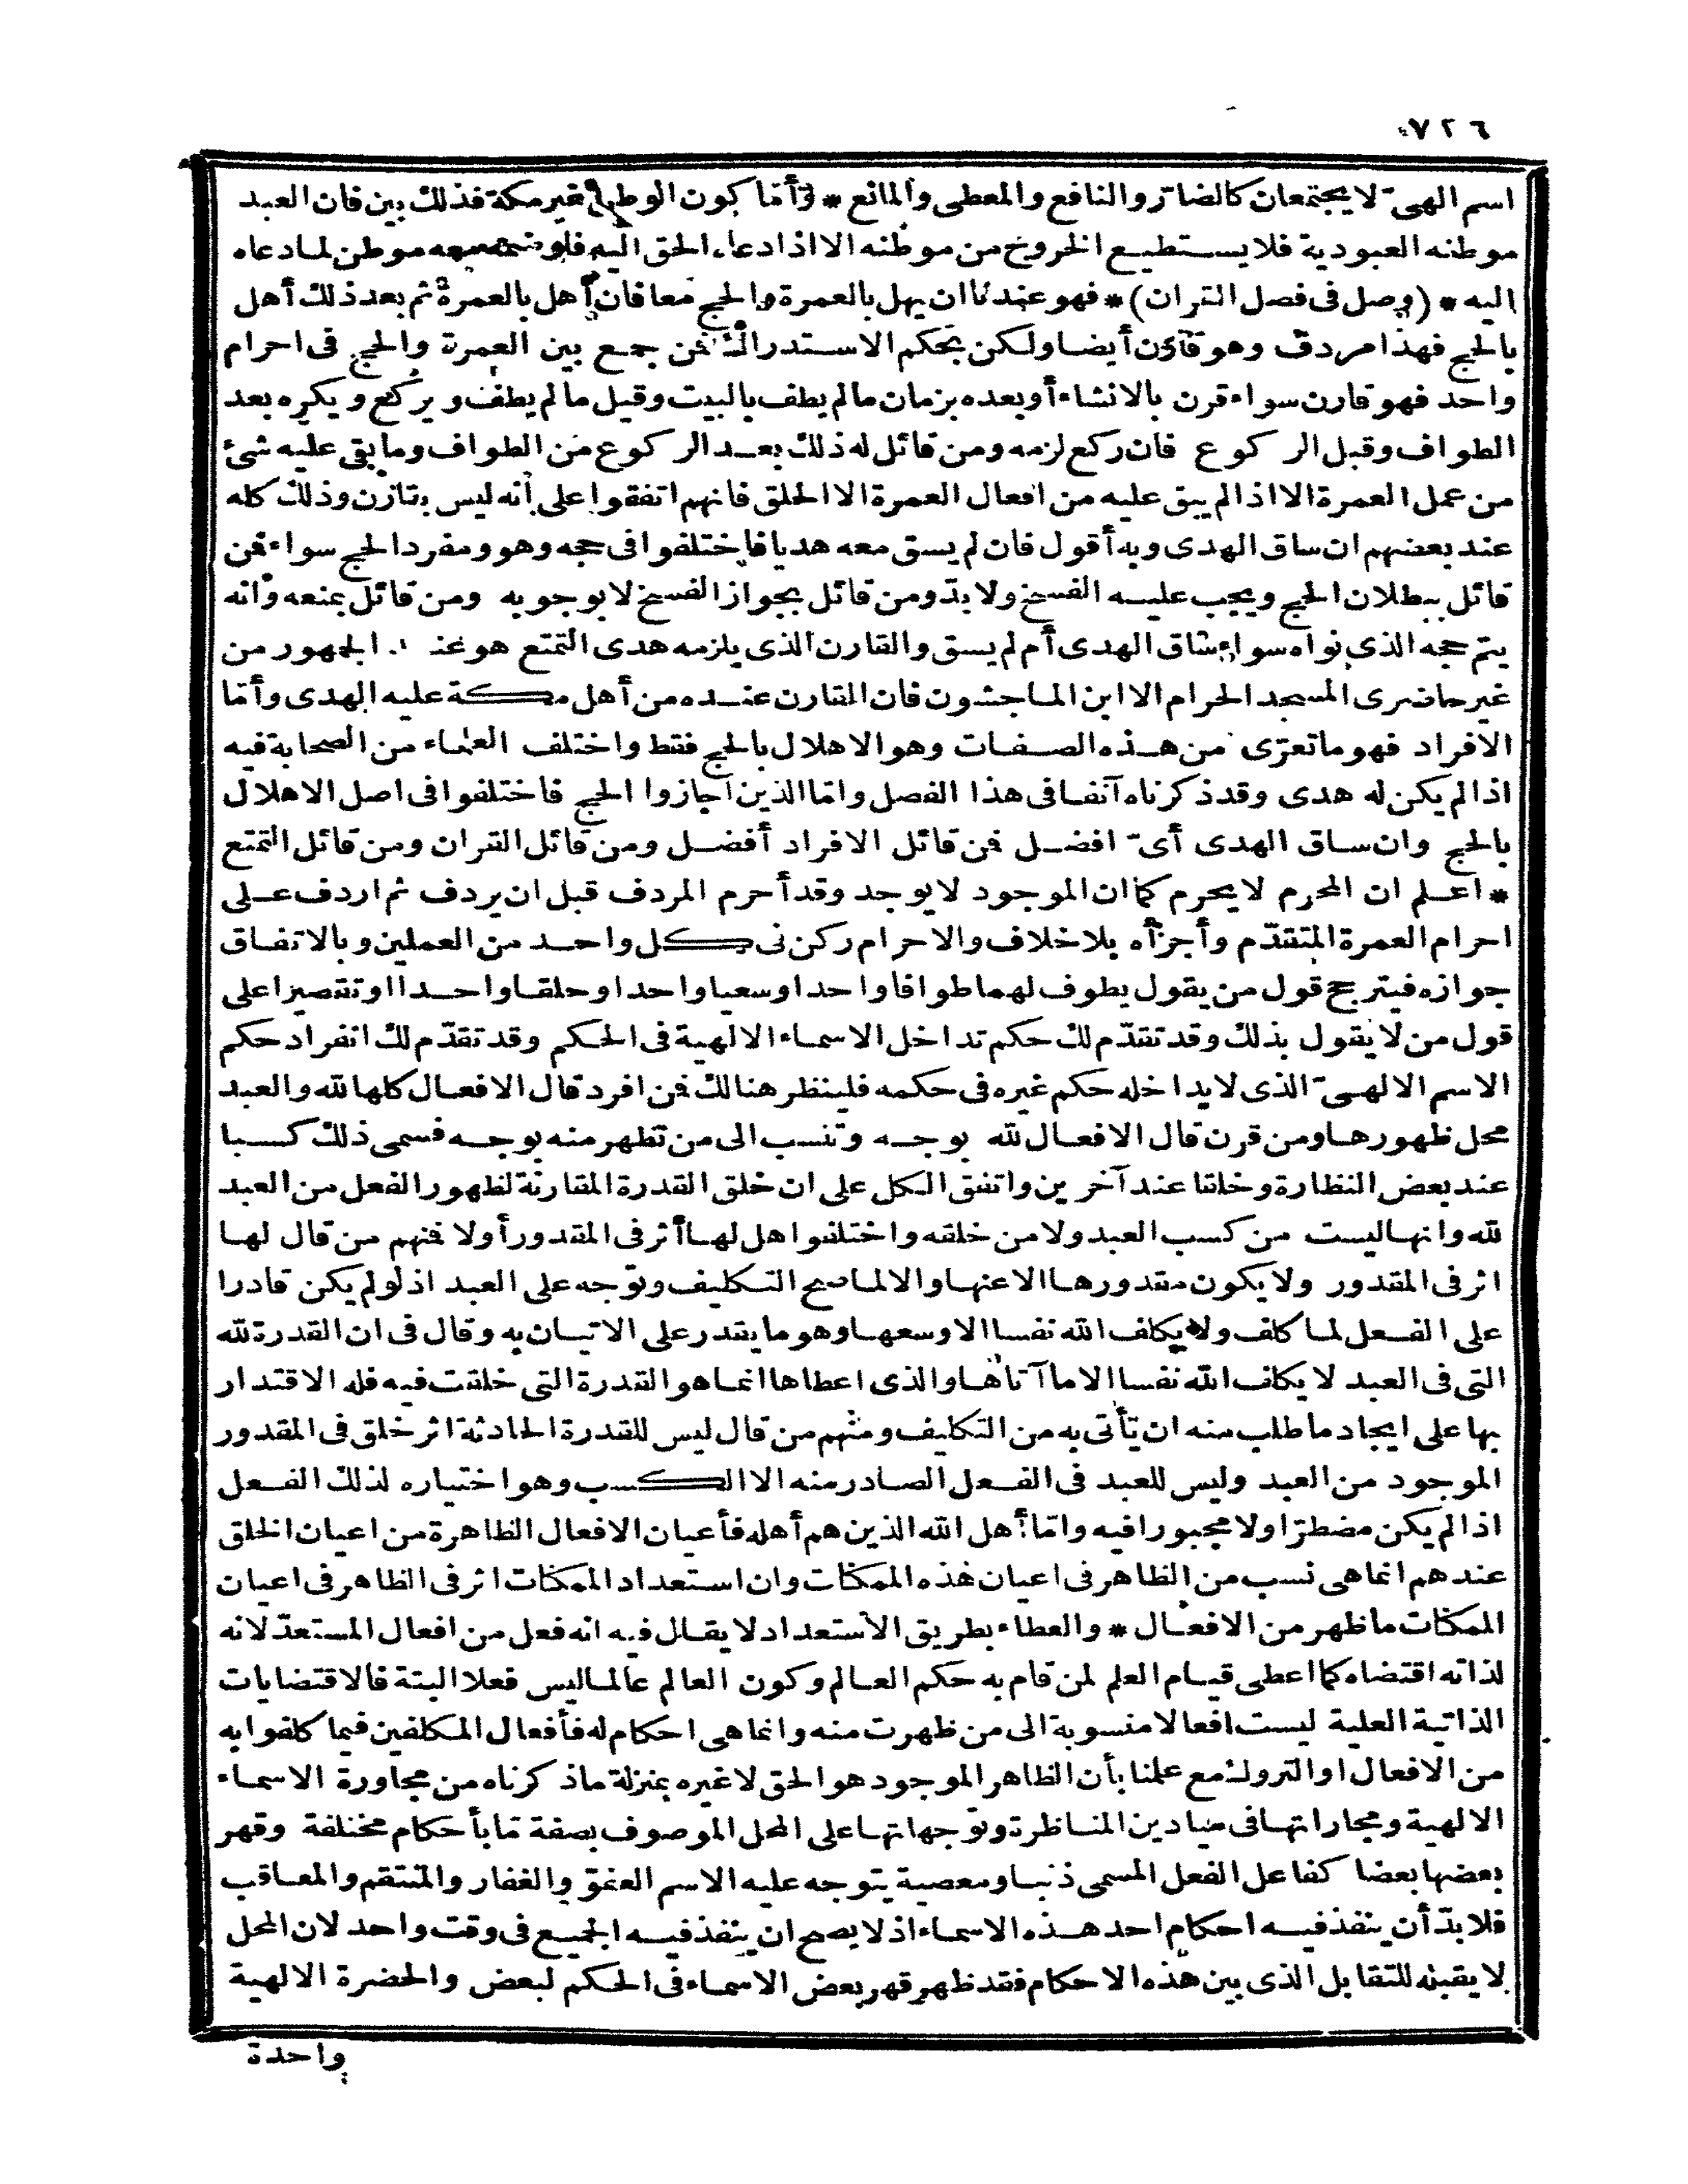 ٧٢٦
اسم الهىّ لا يجتمعان كالضارّ والنافع والمعطى والمانع * وأمّا كون الوطن غير مكة فذلك بين فان العبد
موطنه العبودية فلا يستطيع الخروج من موطنه الا اذا دعاه الحق اليه فلو موطن لما دعاه
اليه * (وصل فى فصل القران) * فهو عندنا ان يهل بالعمرة والحج معا فان أهل بالعمرة ثم بعد ذلك أهل
بالحج فهذا مردف وهو قارن أيضا ولكن بحكم الاستدراك فمن جمع بين العمرة والحج فى احرام
واحد فهو قارن سواء قرن بالانشاء أو بعده بزمان ما لم يطف بالبيت وقيل ما لم يطف ويركع ويكره بعد
الطواف وقبل الركوع فان ركع لزمه ومن قائل له ذلك بعد الركوع من الطواف وما بقى عليه شئ
من عمل العمرة الا اذا لم يبق عليه من افعال العمرة الا الحلق فانهم اتفقوا على أنه ليس بقارن وذلك كله
عند بعضهم ان ساق الهدى وبه أقول فان لم يسق معه هديا فاختلفوا فى حجه وهو ومفرد الحج سواء فمن
قائل ببطلان الحج ويجب عليه الفسخ ولا بدّ ومن قائل بجواز الفسخ لا بوجوبه ومن قائل بمنعه وأنه
يتم حجه الذى نواه سواء ساق الهدى أم لم يسق والقارن الذى يلزمه هدى التمتع هو عند الجمهور من
غير حاضرى المسجد الحرام الا ابن الماجشون فان القارن عنده من أهل مكة عليه الهدى وأمّا
الافراد فهو ما تعرّى من هذه الصفات وهو الاهلال بالحج فقط واختلف العلماء من الصحابة فيه
اذا لم يكن له هدى وقد ذكرناه آنفا فى هذا الفصل وامّا الذين أجازوا الحج فاختلفوا فى اصل الاهلال
بالحج وان ساق الهدى أىّ افضل فمن قائل الافراد أفضل ومن قائل القران ومن قائل التمتع
* اعلم ان المحرم لا يحرم كما ان الموجود لا يوجد وقد أحرم المردف قبل ان يردف ثم اردف على
احرام العمرة المتقدّم وأجزأه بلا خلاف والاحرام ركن فى كل واحد من العملين وبالاتفاق
جوازه فيترجح قول من يقول يطوف لهما طوافا واحدا وسعيا واحدا وحلقا واحدا او تقصيرا على
قول من لا يقول بذلك وقد تقدّم لك حكم تداخل الاسماء الالهية فى الحكم وقد تقدّم لك انفراد حكم
الاسم الالهىّ الذى لا يداخله حكم غيره فى حكمه فلينظر هنالك فمن افرد قال الافعال كلها لله والعبد
محل ظهورها ومن قرن قال الافعال لله بوجه وتنسب الى من تظهر منه بوجه فسمى ذلك كسبا
عند بعض النظارة وخلقا عند آخرين واتفق الكل على ان خلق القدرة المقارنة لظهور الفعل من العبد
لله وانها ليست من كسب العبد ولا من خلقه واختلفوا هل لها أثر فى المقدور أو لا فمنهم من قال لها
اثر فى المقدور ولا يكون مقدورها الا عنها والا لما صح التكليف وتوّجه على العبد اذ لو لم يكن قادرا
على الفعل لما كلف ولا يكلف الله نفسا الا وسعها وهو ما يقدر على الاتيان به وقال فى ان القدرة لله
التى فى العبد لا يكلف الله نفسا الا ما آتاها والذى اعطاها انما هو القدرة التى خلقت فيه فله الاقتدار
بها على ايجاد ما طلب منه ان يأتى به من التكليف ومنهم من قال ليس للقدرة الحادثة اثر خلق فى المقدور
الموجود من العبد وليس للعبد فى الفعل الصادر منه الا الكسب وهو اختياره لذلك الفعل
اذا لم يكن مضطرّا ولا مجبورا فيه وامّا أهل الله الذين هم أهله فأعيان الافعال الظاهرة من اعيان الخلق
عندهم انما هى نسب من الظاهر فى اعيان هذه الممكنات وان استعداد الممكنات اثر فى الظاهر فى اعيان
الممكنات ما ظهر من الافعال * والعطاء بطريق الاستعداد لا يقال فيه انه فعل من افعال المستعدّ لانه
لذاته اقتضاه كما اعطى قيام العلم لمن قام به حكم العالم وكون العالم عالما ليس فعلا البتة فالاقتضايات
الذاتية العلية ليست افعالا منسوبة الى من ظهرت منه وانما هى احكام له فأفعال المكلفين فيما كلفوا به
من الافعال او التروك مع علمنا بأن الظاهر الموجود هو الحق لا غيره بمنزلة ما ذكرناه من محاورة الاسماء
الالهية ومجاراتها فى ميادين المناظرة وتوّجهاتها على المحل الموصوف بصفة مّا بأحكام مختلفة وقهر
بعضها بعضا كفاعل الفعل المسمى ذنبا ومعصية يتوجه عليه الاسم العفوّ والغفار والمنتقم والمعاقب
فلا بدّ أن ينفذ فيه احكام احد هذه الاسماء اذ لا يصح ان ينفذ فيه الجميع فى وقت واحد لان المحل
لا يقبله للتقابل الذى بين هذه الاحكام فقد ظهر قهر بعض الاسماء فى الحكم لبعض والحضرة الالهية
واحدة